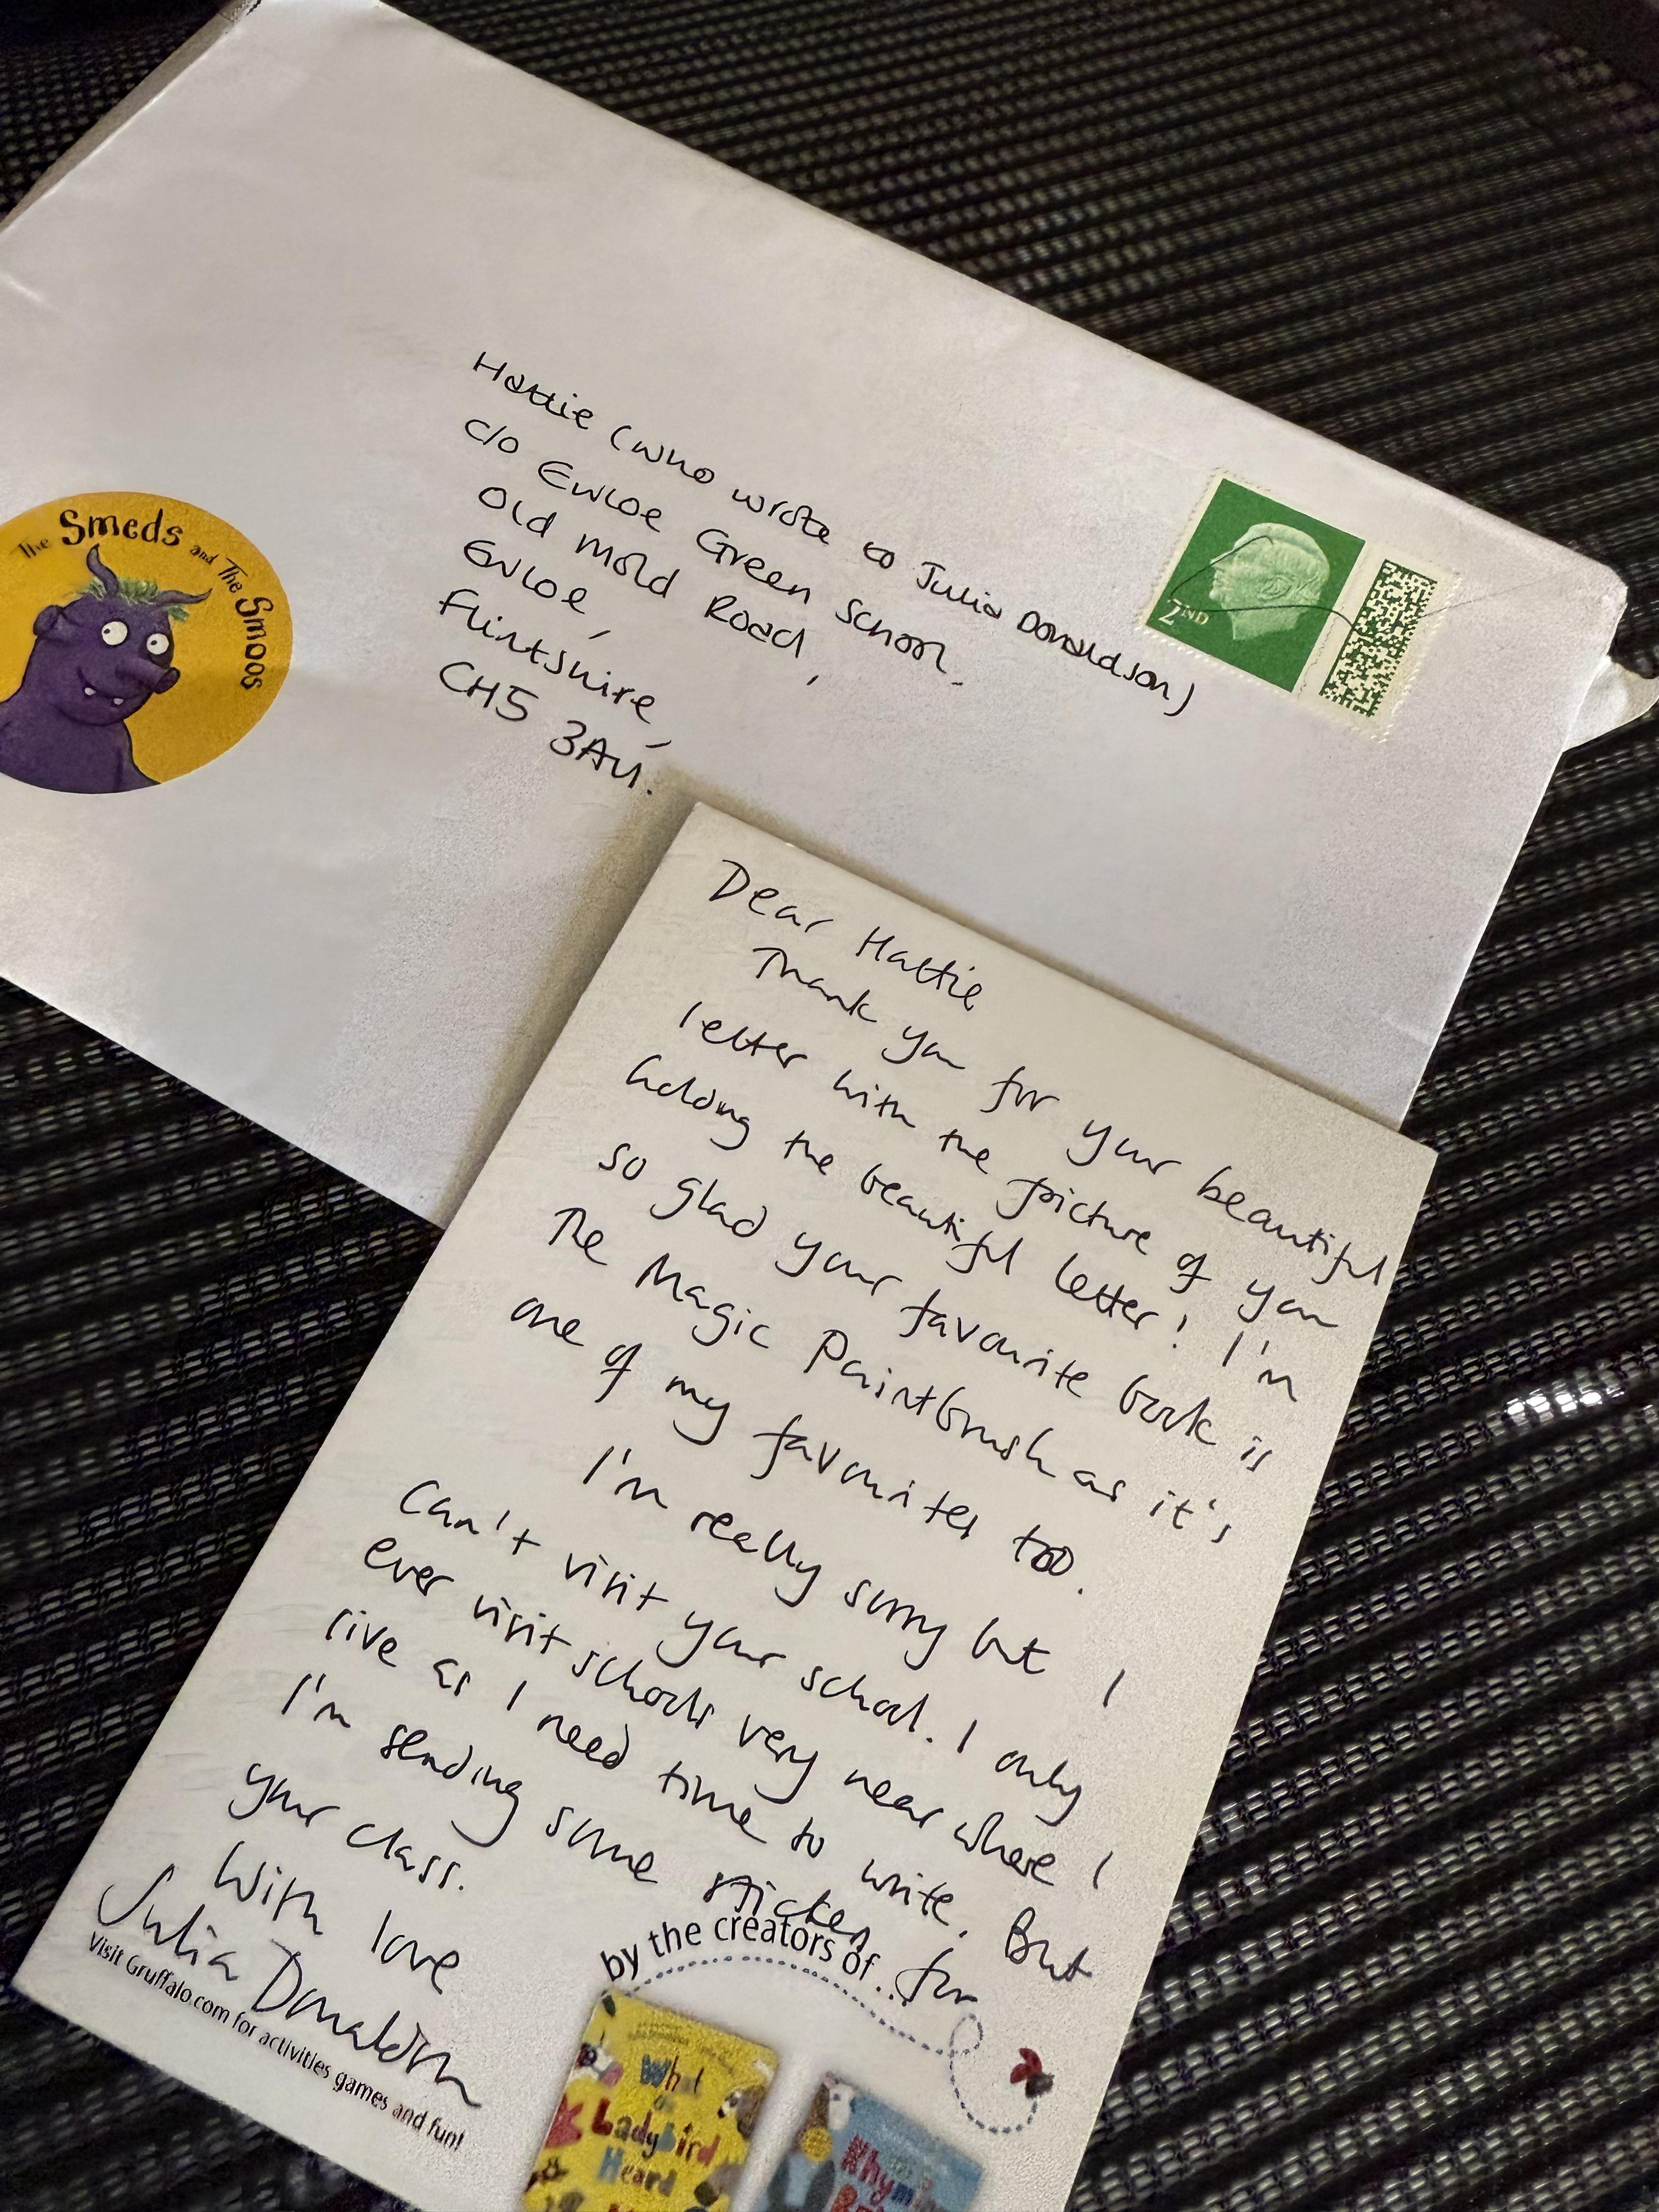 Hattie (who wrote to Julia Donaldson)
c/o Ewloe Green School,
Old Mold Road,
Ewloe,
Flintshire,
CH5 3AU.
2ND
The Smeds and The Smoos
Dear Hattie
Thank you for your beautiful
letter with the picture of you
holding the beautiful letter! I'm
so glad your favourite book is
The Magic Paintbrush as it's
one of my favourites too.
I'm really sorry but I
can't visit your school. I only
ever visit schools very near where I
live as I need time to write. But
I'm sending some stickers for
your class.
With love
Julia Donaldson
Visit Gruffalo.com for activities games and fun!
by the creators of...
What
the
Ladybird
Heard